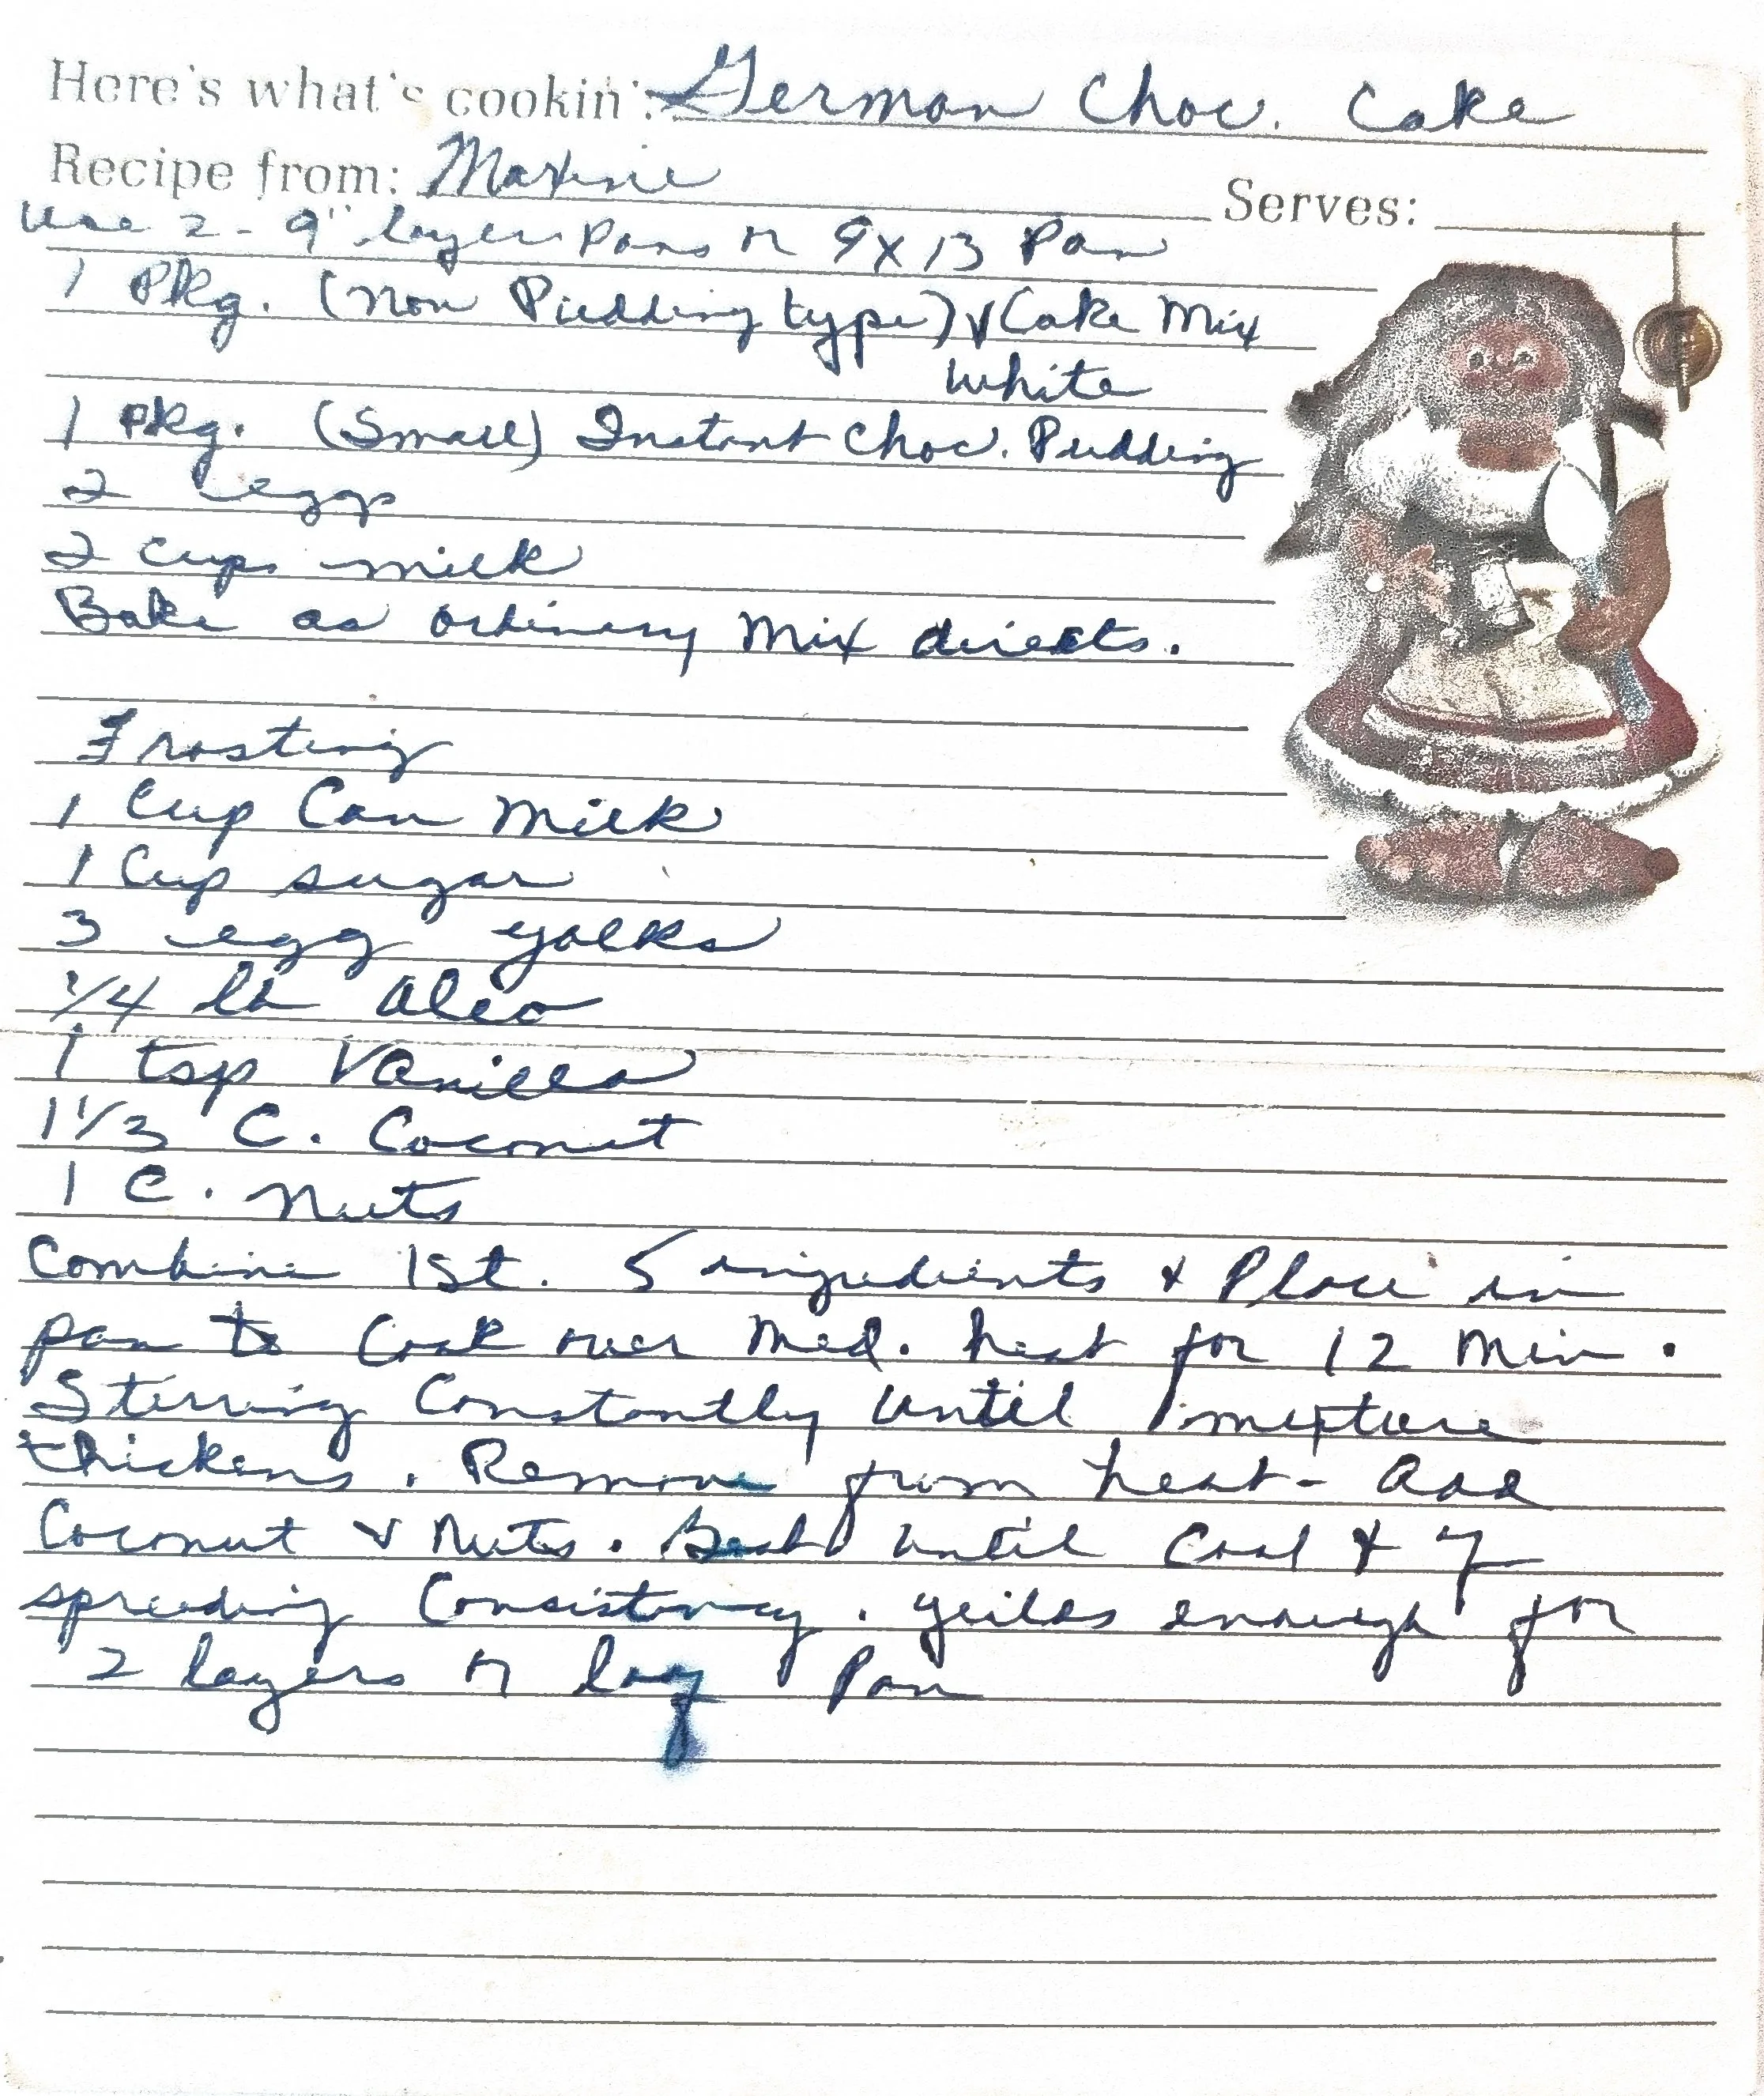 Here's what's cookin': German Choc. Cake
Recipe from: Maxine Serves:
Use 2 - 9" layer pans or 9 x 13 Pan
1 Pkg. (Non Pudding type) v Cake Mix
White
1 Pkg. (Small) Instant Choc. Pudding
2 eggs
2 cups milk
Bake as ordinary Mix directs.
Frosting
1 Cup Can Milk
1 Cup sugar
3 egg yolks
1/4 lb Oleo
1 tsp Vanilla
1 1/3 C. Coconut
1 C. Nuts
Combine 1st. 5 ingredients & Place in
pan to Cook over Med. heat for 12 Min.
Stirring Constantly Until mixture
thickens. Remove from heat - Add
Coconut & Nuts. Beat until Cool & of
spreading Consistency. yeilds enough for
2 layers or log Pan